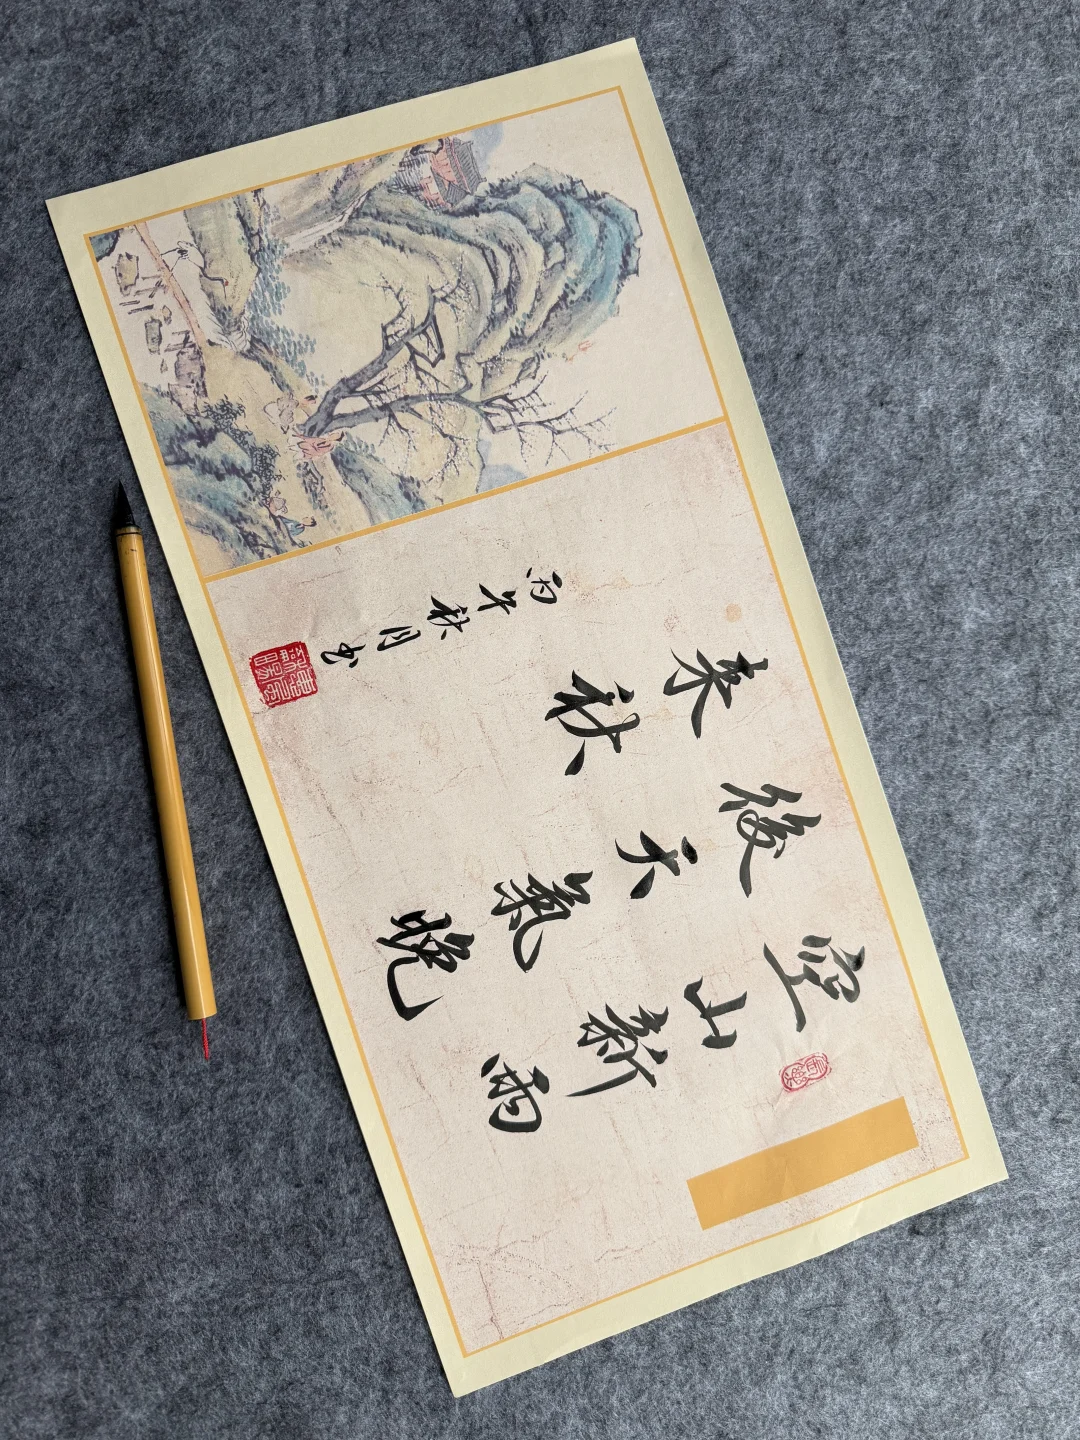 空山新雨
後天氣晚
来秋
丙午秋月书